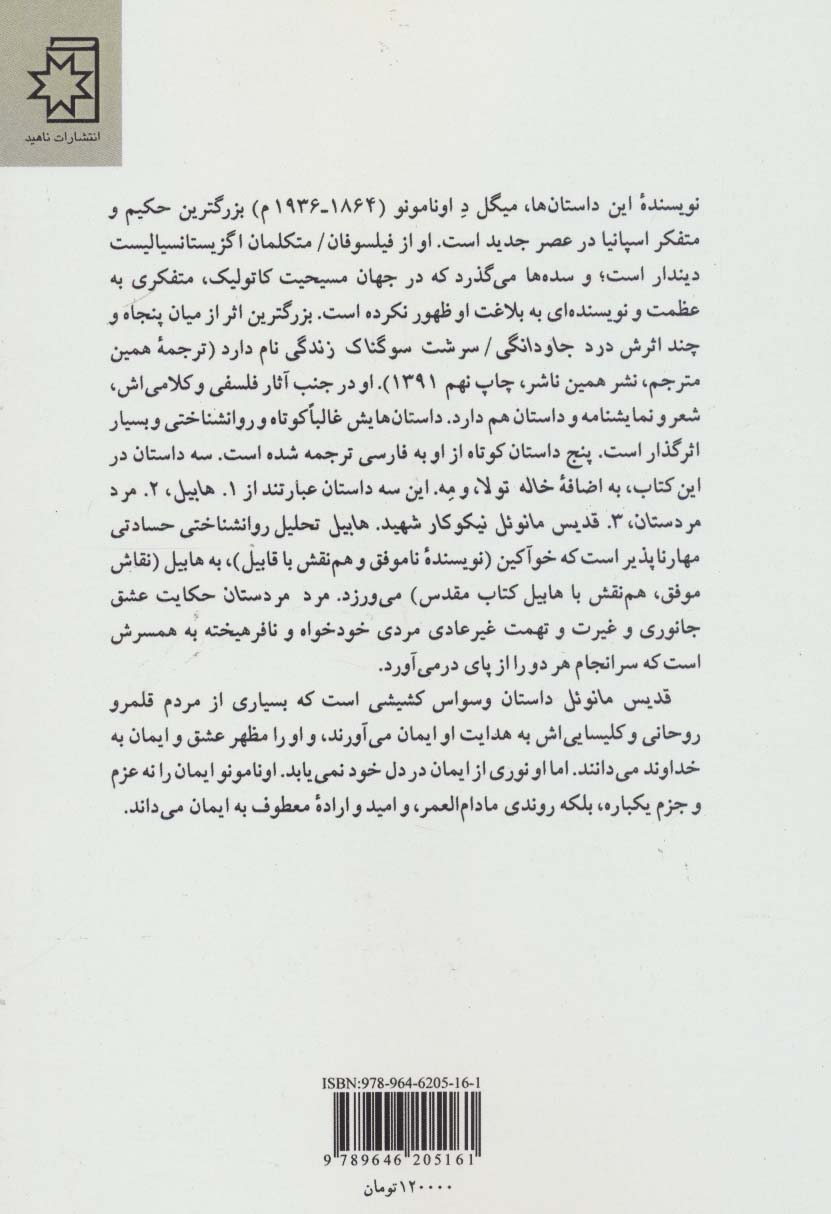 انتشارات ناهید
نویسندهٔ این داستان‌ها، میگل دِ اونامونو (۱۸۶۴-۱۹۳۶ م) بزرگترین حکیم و
متفکر اسپانیا در عصر جدید است. او از فیلسوفان/ متکلمان اگزیستانسیالیست
دیندار است؛ و سده‌ها می‌گذرد که در جهان مسیحیت کاتولیک، متفکری به
عظمت و نویسنده‌ای به بلاغت او ظهور نکرده است. بزرگترین اثر از میان پنجاه و
چند اثرش درد جاودانگی/ سرشت سوگناک زندگی نام دارد (ترجمهٔ همین
مترجم، نشر همین ناشر، چاپ نهم ۱۳۹۱). او در جنب آثار فلسفی و کلامی‌اش،
شعر و نمایشنامه و داستان هم دارد. داستان‌هایش غالباً کوتاه و روانشناختی و بسیار
اثرگذار است. پنج داستان کوتاه از او به فارسی ترجمه شده است. سه داستان در
این کتاب، به اضافهٔ خاله تولا، و مِه. این سه داستان عبارتند از ۱. هابیل، ۲. مرد
مردستان، ۳. قدیس مانوئل نیکوکار شهید. هابیل تحلیل روانشناختی حسادتی
مهارناپذیر است که خوآکین (نویسندهٔ ناموفق و هم‌نقش با قابیل)، به هابیل (نقاش
موفق، هم‌نقش با هابیل کتاب مقدس) می‌ورزد. مرد مردستان حکایت عشق
جانوری و غیرت و تهمت غیرعادی مردی خودخواه و نافرهیخته به همسرش
است که سرانجام هر دو را از پای درمی‌آورد.
قدیس مانوئل داستان وسواس کشیشی است که بسیاری از مردم قلمرو
روحانی و کلیسایی‌اش به هدایت او ایمان می‌آورند، و او را مظهر عشق و ایمان به
خداوند می‌دانند. اما او نوری از ایمان در دل خود نمی‌یابد. اونامونو ایمان را نه عزم
و جزم یکباره، بلکه روندی مادام‌العمر، و امید و ارادهٔ معطوف به ایمان می‌داند.
ISBN:978-964-6205-16-1
9 789646 205161
۱۲۰۰۰۰تومان